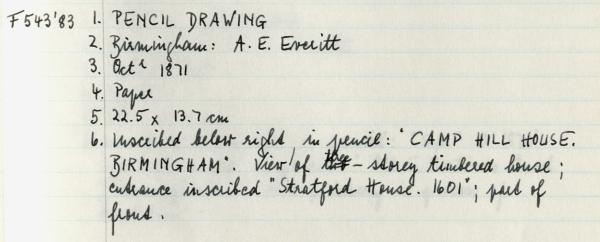 F543'83 1. PENCIL DRAWING
2. Birmingham: A. E. Everitt
3. Octr 1871
4. Paper
5. 22.5 x 13.7 cm
6. Inscribed below right in pencil: "CAMP HILL HOUSE.
BIRMINGHAM". View of - storey timbered house;
entrance inscribed "Stratford House. 1601"; part of
front.